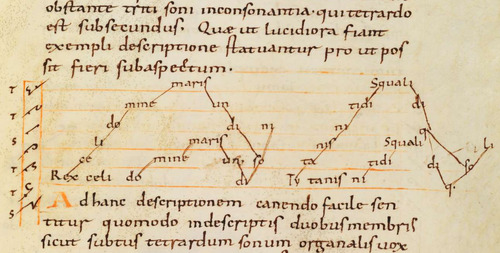 obstante triti soni inconsonantia. qui tetrardo
est subsecundus. Quæ ut lucidiora fiant
exempli descriptione statuantur pro ut pos
sit fieri subaspectum.
maris Squali
mine un tidi di
do di ni nis q
li maris Squali li
ce mine un so ta tidi di so
Rex celi do di Ty tanis ni q
Ad hanc descriptionem canendo facile sen
titur quomodo indescriptis duobus membris
sicut subtus tetrardum sonum organalis uox